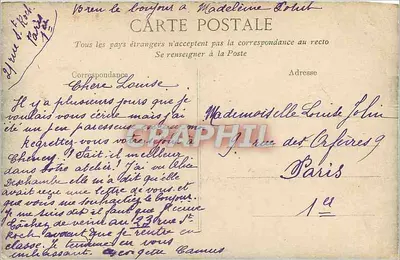 Bien le bonjour à Madeleine
21 rue St Roch
Paris
1er
CARTE POSTALE
Tous les pays étrangers n'acceptent pas la correspondance au recto
Se renseigner à la Poste
Correspondance
Adresse
Chère Louise
Il y a plusieurs jours que je
voulais vous écrire mais j'ai
été un peu paresseuse
Regrettez vous
Chenoy ! Fait il meilleur
dans votre atelier ! J'ai vu Alice
elle m'a dit qu'elle
avait reçu une lettre de vous et
que vous me souhaitiez le bonjour.
Je me suis dit il faut que j'écrive
Tâchez de venir au 23 rue St
Roch avant que je rentre en
classe. Je termine en vous
embrassant. Georgette Camus
Mademoiselle Louise Jolin
9 rue des Orfèvres 9
Paris
1er
CPAPHIL